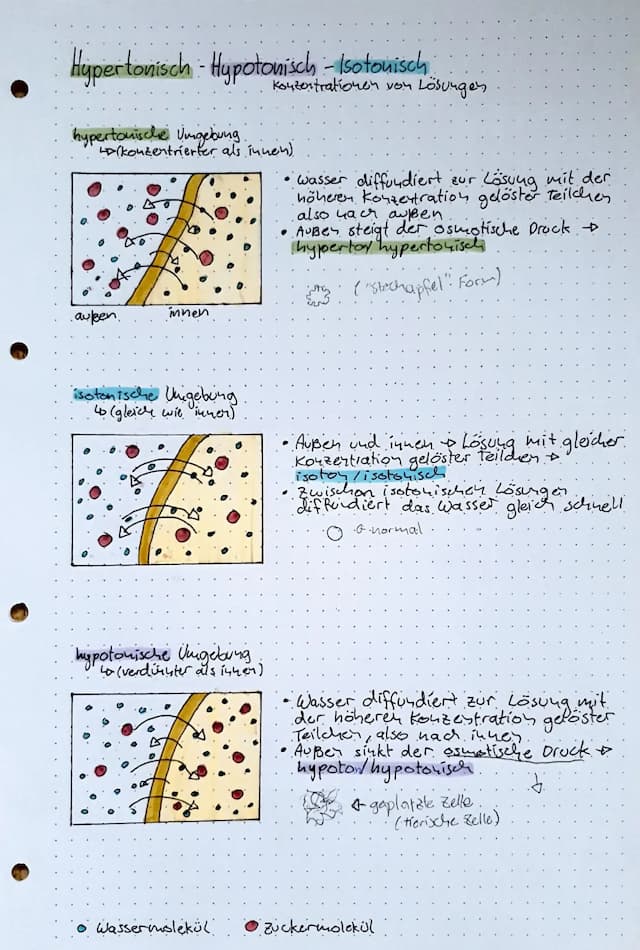 Hypertonisch - Hypotonisch - Isotonisch
Konzentrationen von Lösungen
hypertonische Umgebung
↳ (konzentrierter als innen)
• Wasser diffundiert zur Lösung mit der
höheren Konzentration gelöster Teilchen
also nach außen
• Außen steigt der osmotische Druck →
hyperton/hypertonisch
("Stechapfel"-Form)
außen innen
isotonische Umgebung
↳ (gleich wie innen)
• Außen und innen → Lösung mit gleicher
Konzentration gelöster Teilchen →
isoton/isotonisch
• Zwischen isotonischen Lösungen
diffundiert das Wasser gleich schnell
normal
hypotonische Umgebung
↳ (verdünnter als innen)
• Wasser diffundiert zur Lösung mit
der höheren Konzentration gelöster
Teilchen, also nach innen
• Außen sinkt der osmotische Druck →
hypoton/hypotonisch
← geplatzte Zelle
(tierische Zelle)
Wassermolekül Zuckermolekül